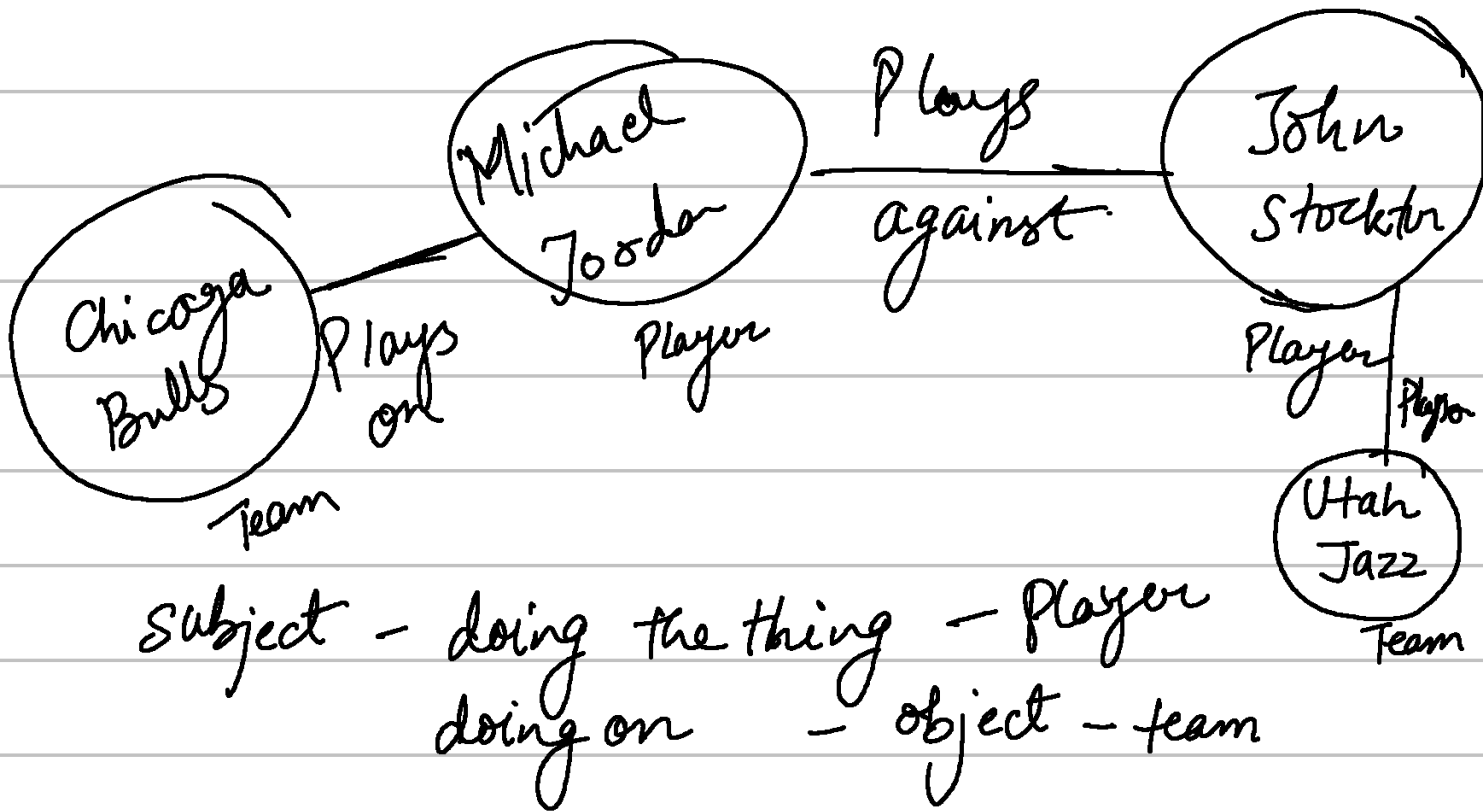 Chicaga
Bulls
Team
Plays
on
Michael
Jordan
Player
Plays
against
John
Stockton
Player
Utah
Jazz
Team
subject - doing the thing - Player
doing on - object - team